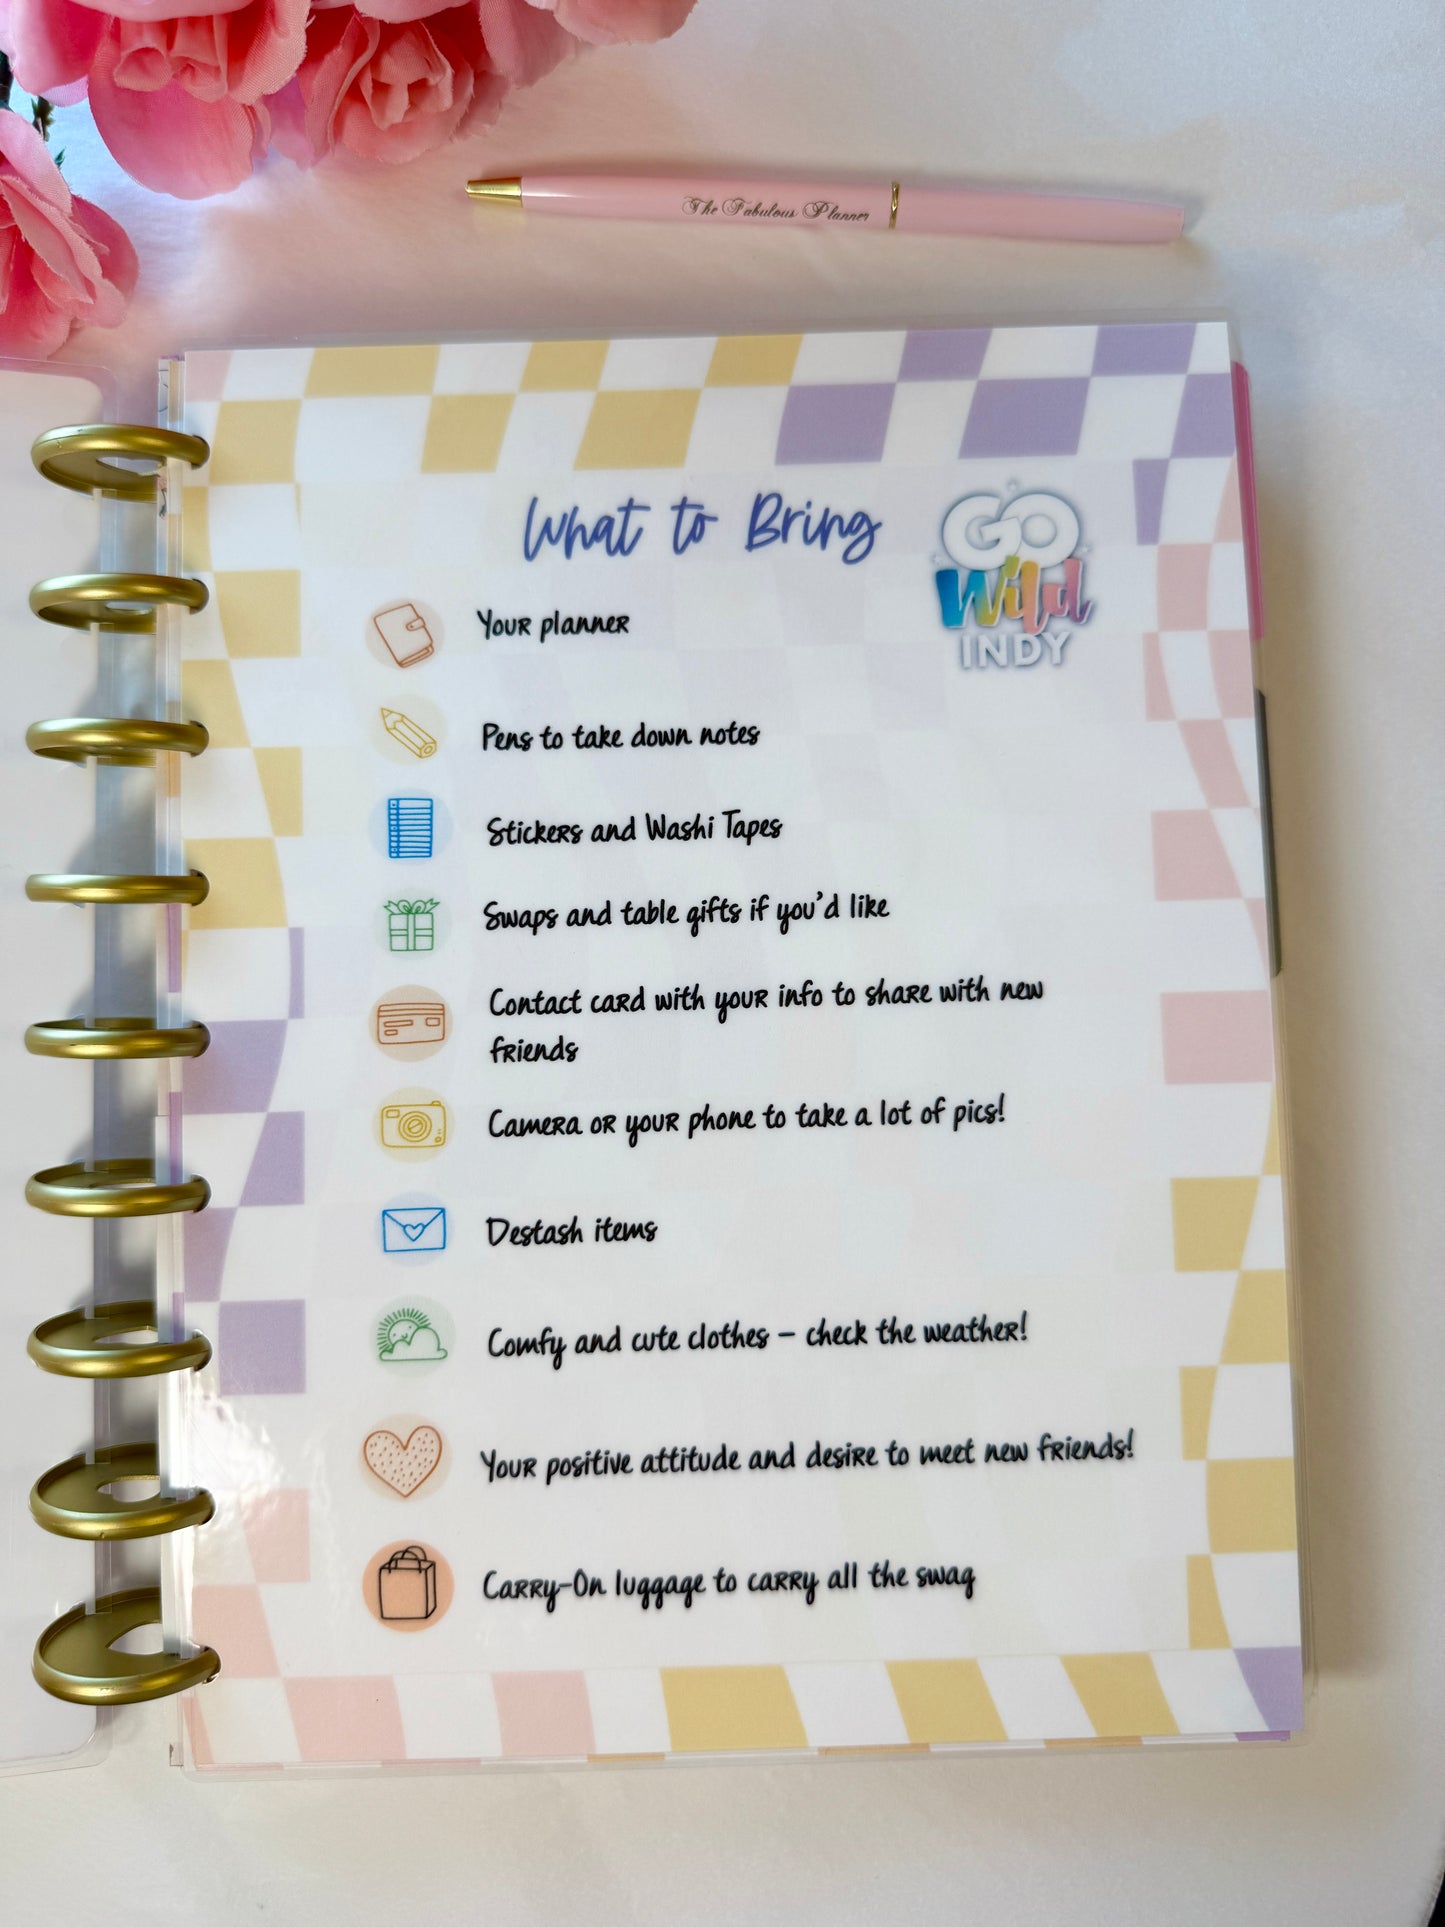 The Fabulous Planner
What to Bring
GO
Wild
INDY
Your planner
Pens to take down notes
Stickers and Washi Tapes
Swaps and table gifts if you'd like
Contact card with your info to share with new
friends
Camera or your phone to take a lot of pics!
Destash items
Comfy and cute clothes – check the weather!
Your positive attitude and desire to meet new friends!
Carry-On luggage to carry all the swag